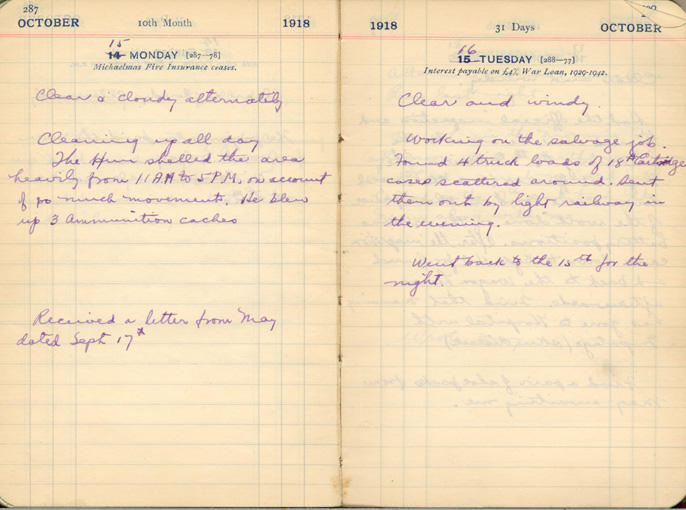 287
OCTOBER 10th Month 1918
15
14 MONDAY [287—78]
Michaelmas Fire Insurance ceases.
Clear & cloudy alternately
Cleaning up all day
The Hun shelled the area
heavily from 11 AM to 5 P.M. on account
of so much movement. He blew
up 3 Ammunition caches
Received a letter from May
dated Sept 17th
1918 31 Days OCTOBER
16
15 TUESDAY [288—77]
Interest payable on £4% War Loan, 1929-1942.
Clear and windy.
Working on the salvage job.
Found 4 truck loads of 18 Cartridge
cases scattered around. Sent
them out by light railway in
the evening.
Went back to the 15th for the
night.